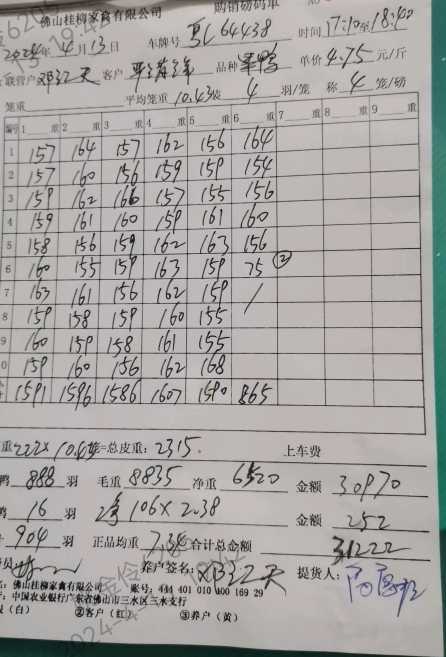 佛山桂柳家禽有限公司 购销磅码单
2024年4月13日 车牌号 64438 时间 17:10至18:40
联营户 邓32天 客户 品种 单价 4.75 元/斤
笼重 平均笼重 10.43 4 羽/笼 称 4 笼/磅
编号 1 重 2 重 3 重 4 重 5 重 6 重 7 重 8 重 9 重
1 157 164 157 162 156 164
2 157 160 156 159 159 154
3 159 162 166 157 155 156
4 159 161 160 159 161 160
5 158 156 159 162 163 156
6 160 155 159 163 159 75 ②
7 163 161 156 162 159 /
8 159 158 159 160 155
9 160 159 158 161 155
0 159 160 156 162 168
1591 1596 1586 1607 1590 865
重 222X10.43=总皮重: 2315. 上车费
鸭 888 羽 毛重 8835 净重 6520 金额 30970
鸭 16 羽 净 106X2.38 金额 252
904 羽 正品均重 7.34 合计总金额 31222
养户签名: 邓32天 提货人:
佛山桂柳家禽有限公司 账号: 444 401 010 400 169 29
中国农业银行广东省佛山市三水区三水支行
(白) ②客户(红) ③养户(黄)